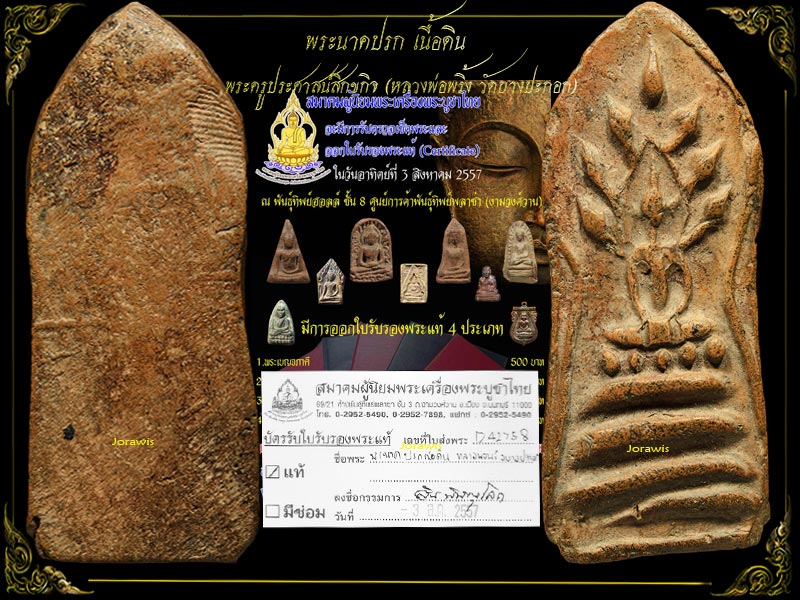 พระนาคปรก เนื้อดิน
พระครูประศาสน์สิกขกิจ (หลวงพ่อพริ้ง วัดบางปะกอก)
สมาคมผู้นิยมพระเครื่องพระบูชาไทย
จะมีการรับตรวจเช็คพระและ
ออกใบรับรองพระแท้ (Certificate)
ในวันอาทิตย์ที่ 3 สิงหาคม 2557
ณ พันธุ์ทิพย์ฮอลล์ ชั้น 8 ศูนย์การค้าพันธุ์ทิพย์พลาซ่า (งามวงศ์วาน)
มีการออกใบรับรองพระแท้ 4 ประเภท
1.พระเบญจภาคี 500 บาท
สมาคมผู้นิยมพระเครื่องพระบูชาไทย
โทร. 0-2952-5490, 0-2952-7898, แฟกซ์ : 0-2952-5490
บัตรรับใบรับรองพระแท้ เลขที่ใบส่งพระ
ชื่อพระ
แท้
ลงชื่อกรรมการ
มีซ่อม วันที่ - 3 ส.ค. 2557
Jorawis
Jorawis
Jorawis